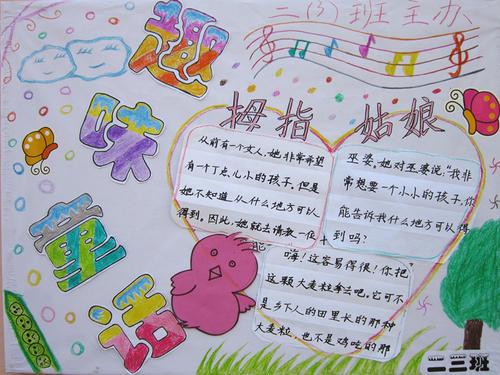 二(3)班主办
趣味童话
拇指姑娘
从前有个女人,她非常希望
有一个丁点儿小的孩子。但是
她不知道从什么地方可以
得到。因此,她就去请教一位
巫婆,她对巫婆说:"我非
常想要一个小小的孩子,你
能告诉我什么地方可以得
到吗?
能
嗨!这容易得很!你把
这颗大麦粒拿去吧。它可不
是乡下人的田里长的那种
大麦粒,也不是鸡吃的那
二三班